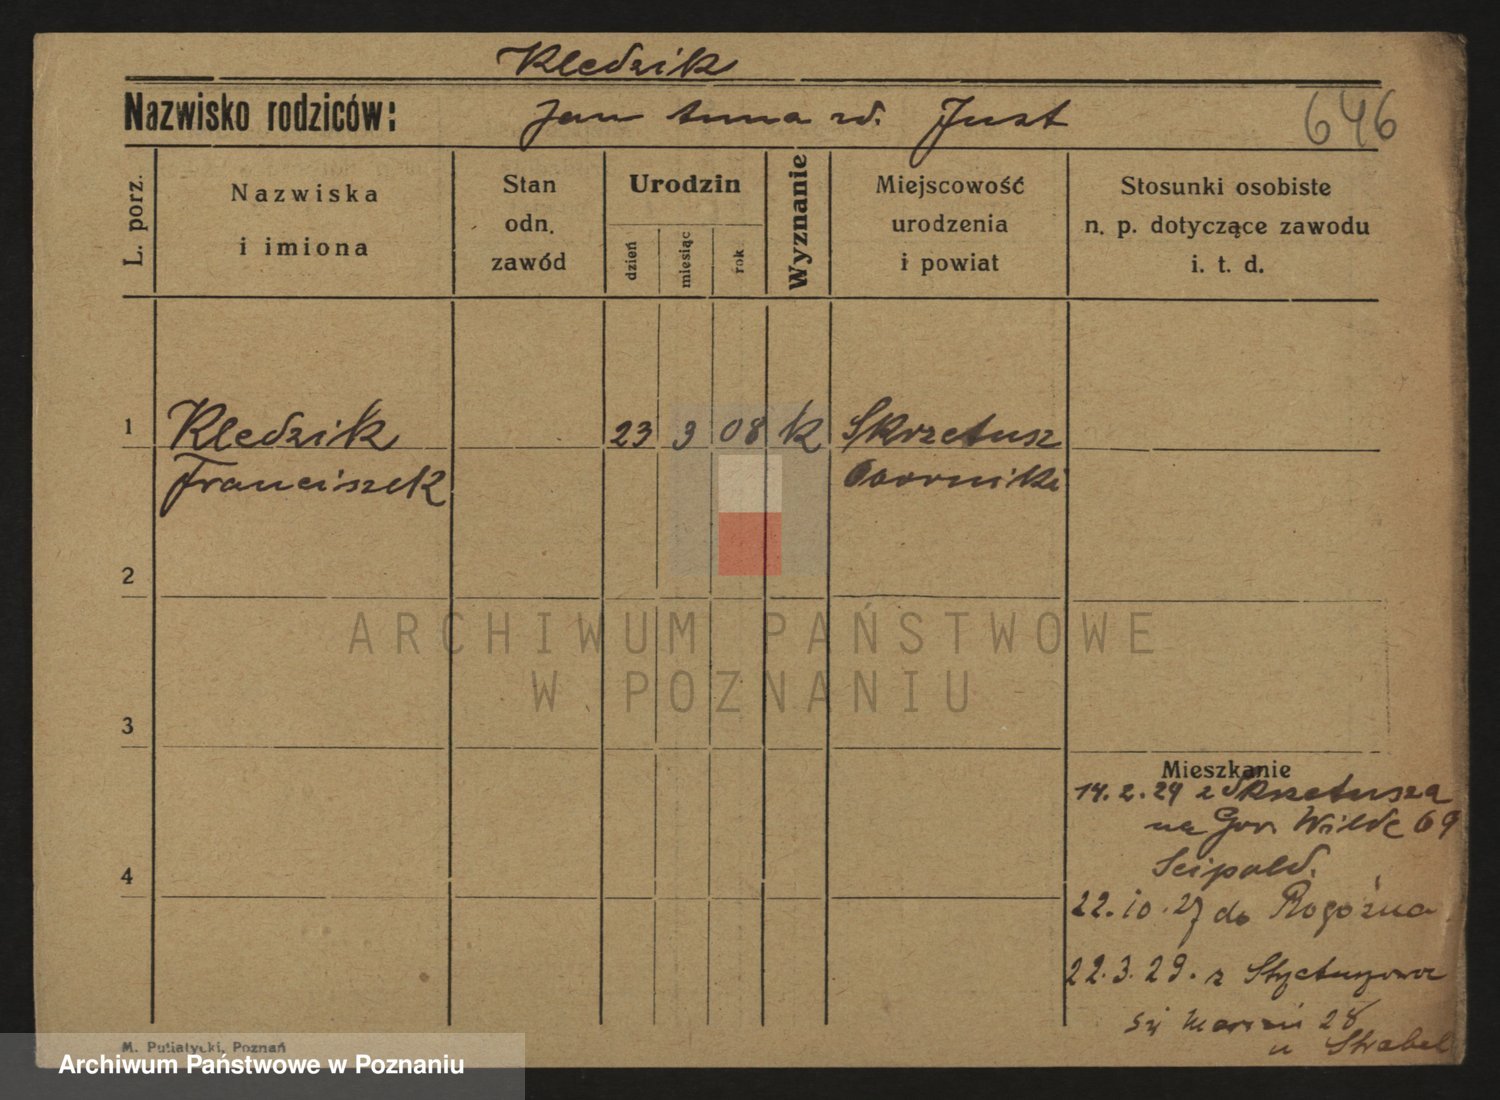 Kledzik
Nazwisko rodziców: Jan Anna rd. Just
646
L. porz.
Nazwiska
i imiona
Stan
odn.
zawód
Urodzin
dzień
miesiąc
rok
Wyznanie
Miejscowość
urodzenia
i powiat
Stosunki osobiste
n. p. dotyczące zawodu
i. t. d.
1 Kledzik 23 3 08 k Skrzetusz
Franciszek Obornicki
2
3
4
ARCHIWUM PAŃSTWOWE
W POZNANIU
Mieszkanie
14.2.24 z Skrzetusza
na Gór Wilde 69
Seipold.
22.10.27 do Rogoźna
22.3.29. z
św Marcin 28
u Strabel
M. Putiatycki, Poznań
Archiwum Państwowe w Poznaniu